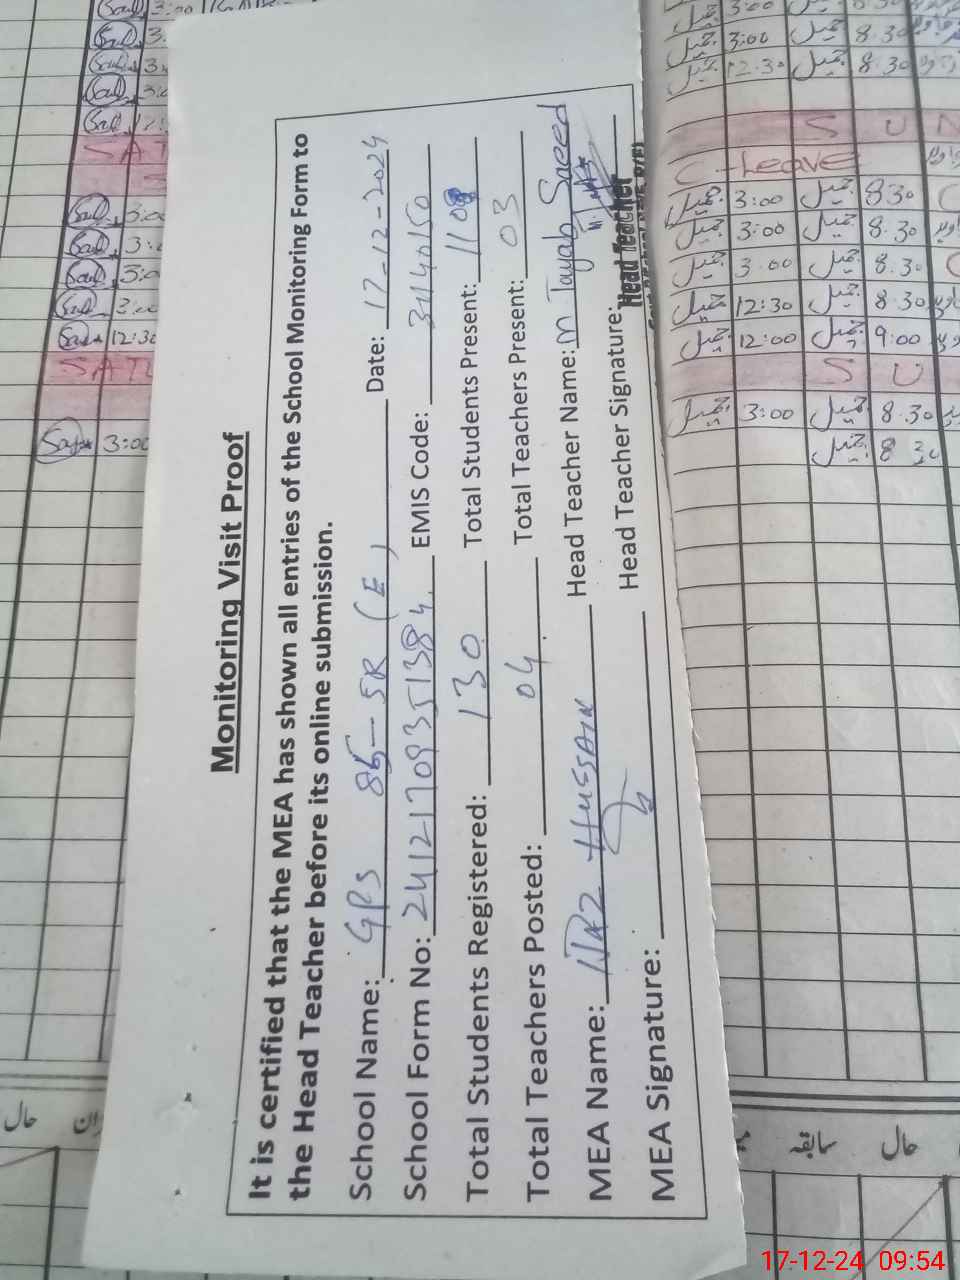 Monitoring Visit Proof
It is certified that the MEA has shown all entries of the School Monitoring Form to
the Head Teacher before its online submission.
School Name: GPS 85-5R (E) Date: 17-12-2024
School Form No: 24121709351384 EMIS Code: 31140150
Total Students Registered: 130 Total Students Present: 110
Total Teachers Posted: 04 Total Teachers Present: 03
MEA Name: HUSSAIN Head Teacher Name: M Tayab Saeed
MEA Signature: Head Teacher Signature:
Head Teacher
3:00
3:00
3:00
12:30
3:00
SAT
3:00
جمیل 3:00 جمیل 8.30
جمیل 12:30 جمیل 8.30
S U N
C-Leave
جمیل 3:00 جمیل 8.30
جمیل 3:00 جمیل 8.30
جمیل 3:00 جمیل 8.30
جمیل 12:30 جمیل 8.30
جمیل 12:00 جمیل 9:00
S U
جمیل 3:00 جمیل 8.30
جمیل 8 30
حال
سابقہ
حال
17-12-24 09:54